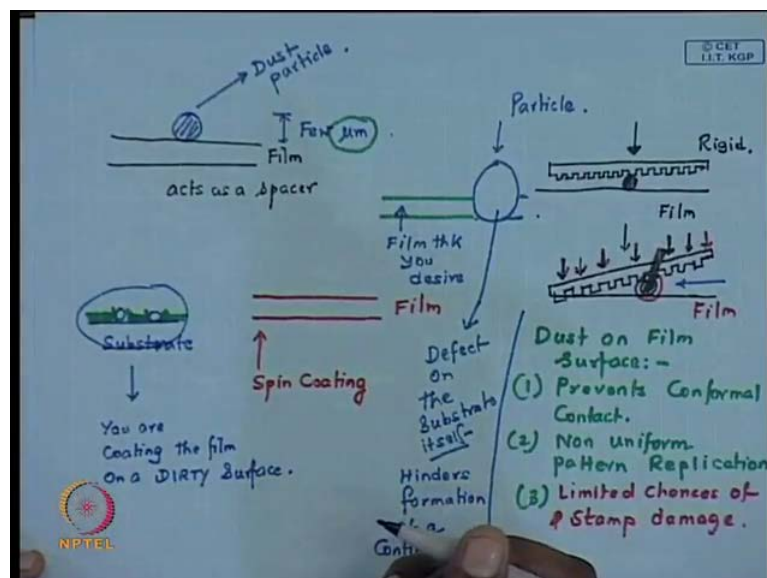 Dust
particle.
© CET
I.I.T. KGP
Few μm.
Film
acts as a spacer
Particle.
Rigid.
Film
Film thk
you
desire
Film
Substrate
Film
Spin Coating
You are
Coating the film
on a DIRTY Surface.
Defect
on
the
Substrate
itself
Hinders
formation
a
Dust on Film
Surface:-
(1) Prevents Conformal
Contact.
(2) Non uniform
pattern Replication
(3) Limited Chances of
Stamp damage.
NPTEL